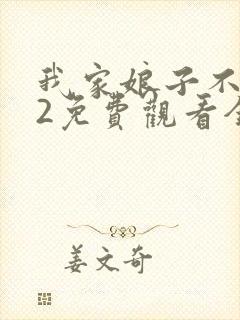 我家娘子不
2免費觀看全
姜文奇